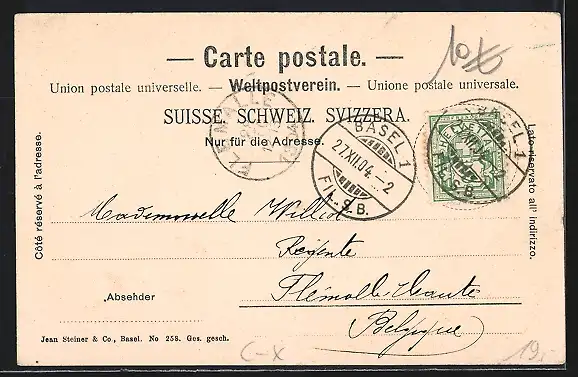 — Carte postale. —
Union postale universelle. — Weltpostverein. — Unione postale universale.
SUISSE. SCHWEIZ. SVIZZERA.
Nur für die Adresse.
Côté réservé à l'adresse.
Lato riservato all' indirizzo.
BASEL 1
27.XII.04.-2
FIL.S.B.
HELVETIA
BASEL 1
FIL.S.B.
Mademoiselle Williot
Régente
Flémalle-Haute
Belgique
Absender
Jean Steiner & Co., Basel. No 258. Ges. gesch.
C-X
19.